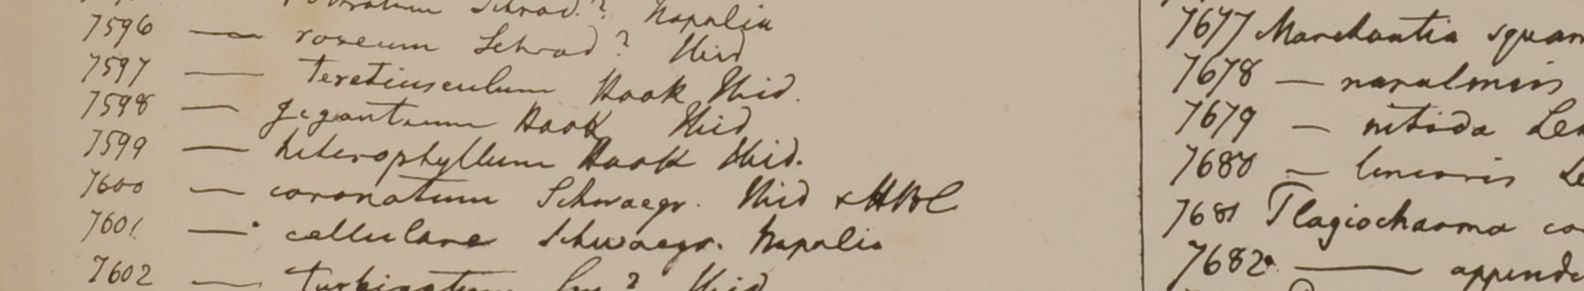 Schrad.? Napalia
7596 — roseum Schrad? Ibid
7597 — teretiusculum Hook Ibid.
7598 — giganteum Hook Ibid
7599 — heterophyllum Hook Ibid.
7600 — coronatum Schwaegr. Ibid & HBC
7601 — cellulare Schwaegr. Napalia
7602 — turbinatum Sw? Ibid
7677 Marchantia squam
7678 — napalensis
7679 — nitida Le
7680 — linearis Le
7681 Plagiochasma co
7682 — append